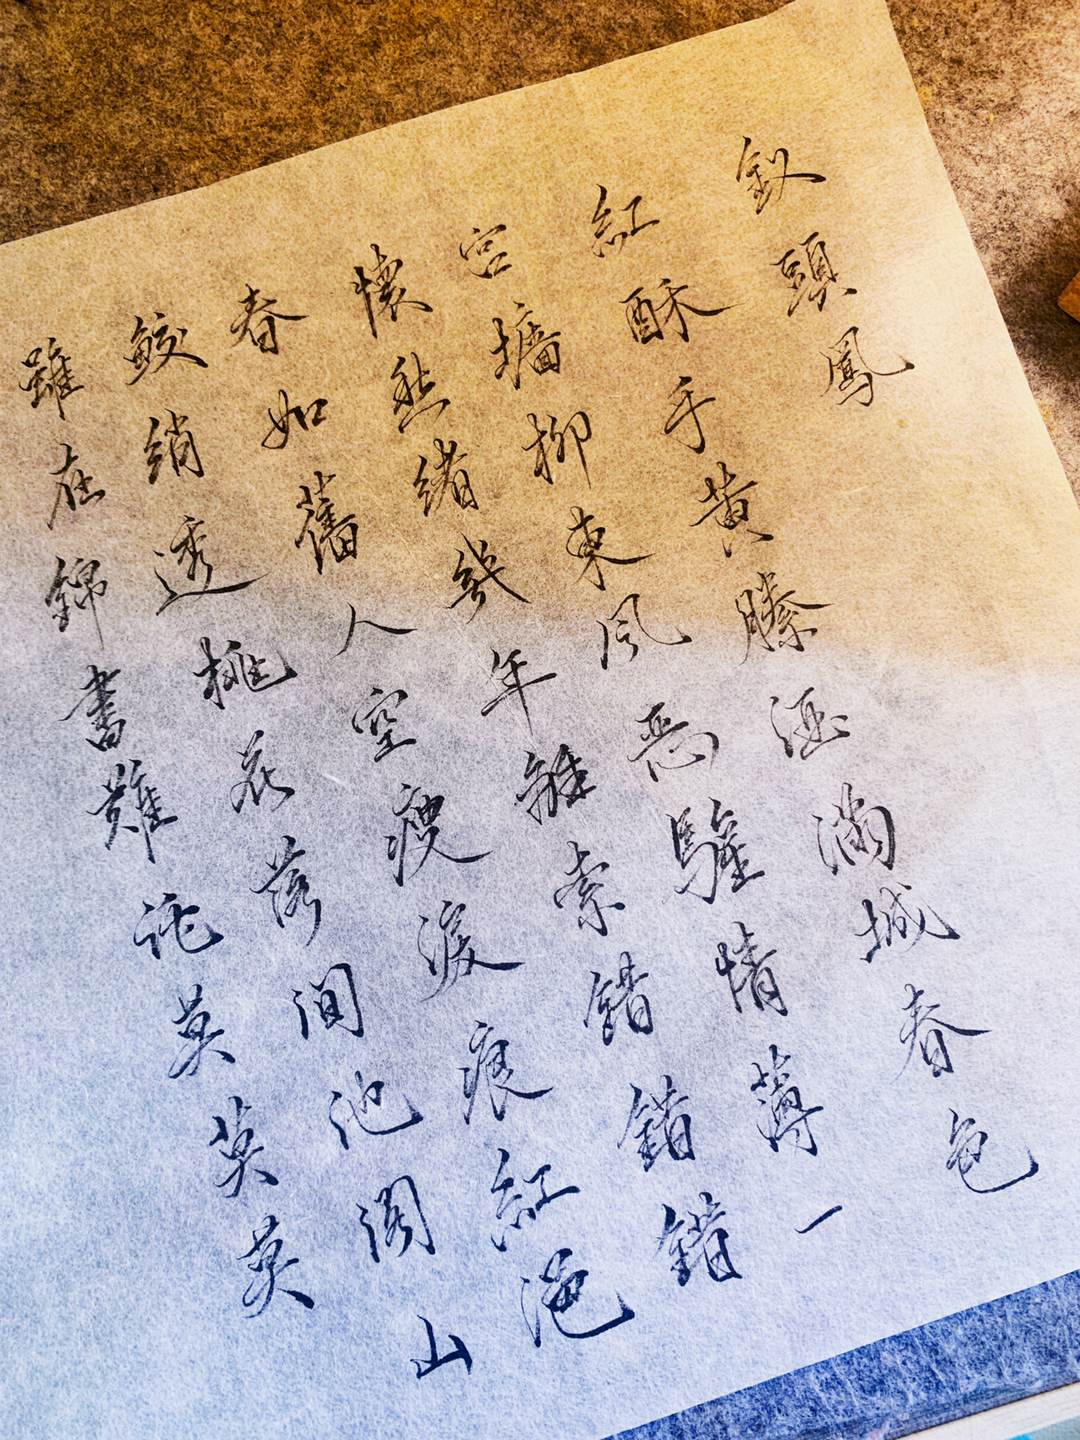 釵頭鳳
紅酥手黄滕酒滿城春色
宮墻柳東風恶驩情薄一
懷愁緒幾年離索錯錯錯
春如舊人空瘦淚痕紅浥
鮫綃透桃花落間池閣山
雖在錦書難託莫莫莫